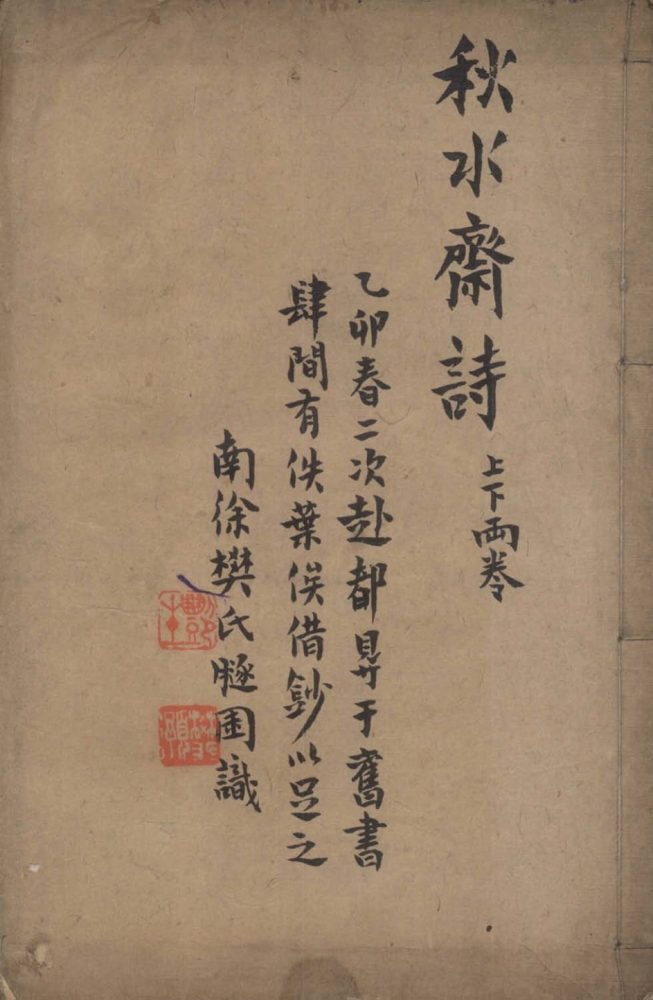 秋水齋詩
上下兩卷
乙卯春二次赴都得于舊書
肆間有佚葉俟借鈔以足之
南徐樊氏 識